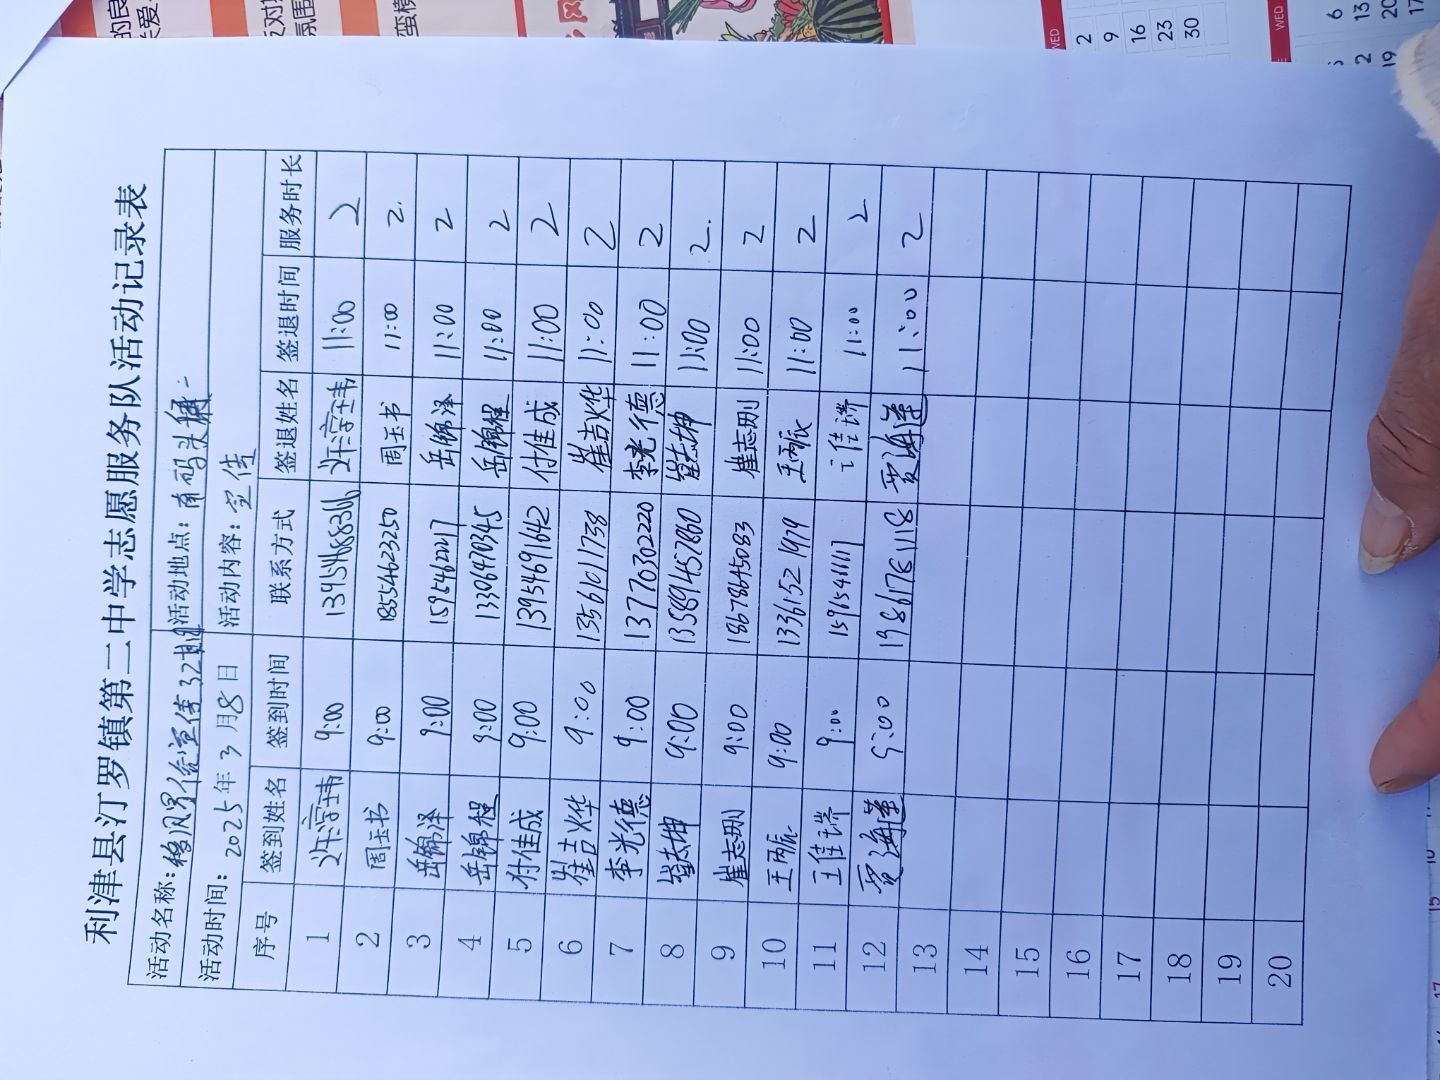 利津县汀罗镇第二中学志愿服务队活动记录表
活动名称: 活动地点:
活动时间: 2025年3月8日 活动内容: 宣传
序号 签到姓名 签到时间 联系方式 签退姓名 签退时间 服务时长
1 9:00 11:00 2
2 周玉书 9:00 18554623250 周玉书 11:00 2.
3 岳锦泽 9:00 岳锦泽 11:00 2
4 岳锦程 9:00 13306470345 岳锦程 11:00 2
5 付佳成 9:00 13954691642 付佳成 11:00 2
6 崔吉火华 9:00 13561011738 崔吉火华 11:00 2
7 李光德 9:00 13770302220 李光德 11:00 2
8 崔志坤 9:00 13589457860 崔志坤 11:00 2.
9 崔志刚 9:00 18678645083 崔志刚 11:00 2
10 王丙辰 9:00 13361521979 王丙辰 11:00 2
11 王佳 9:00 15965411117 佳 11:00 2
12 贾海莲 9:00 19861781118 贾海莲 11:00 2
13
14
15
16
17
18
19
20
WED
2
9
16
23
30
WED
6
13
20